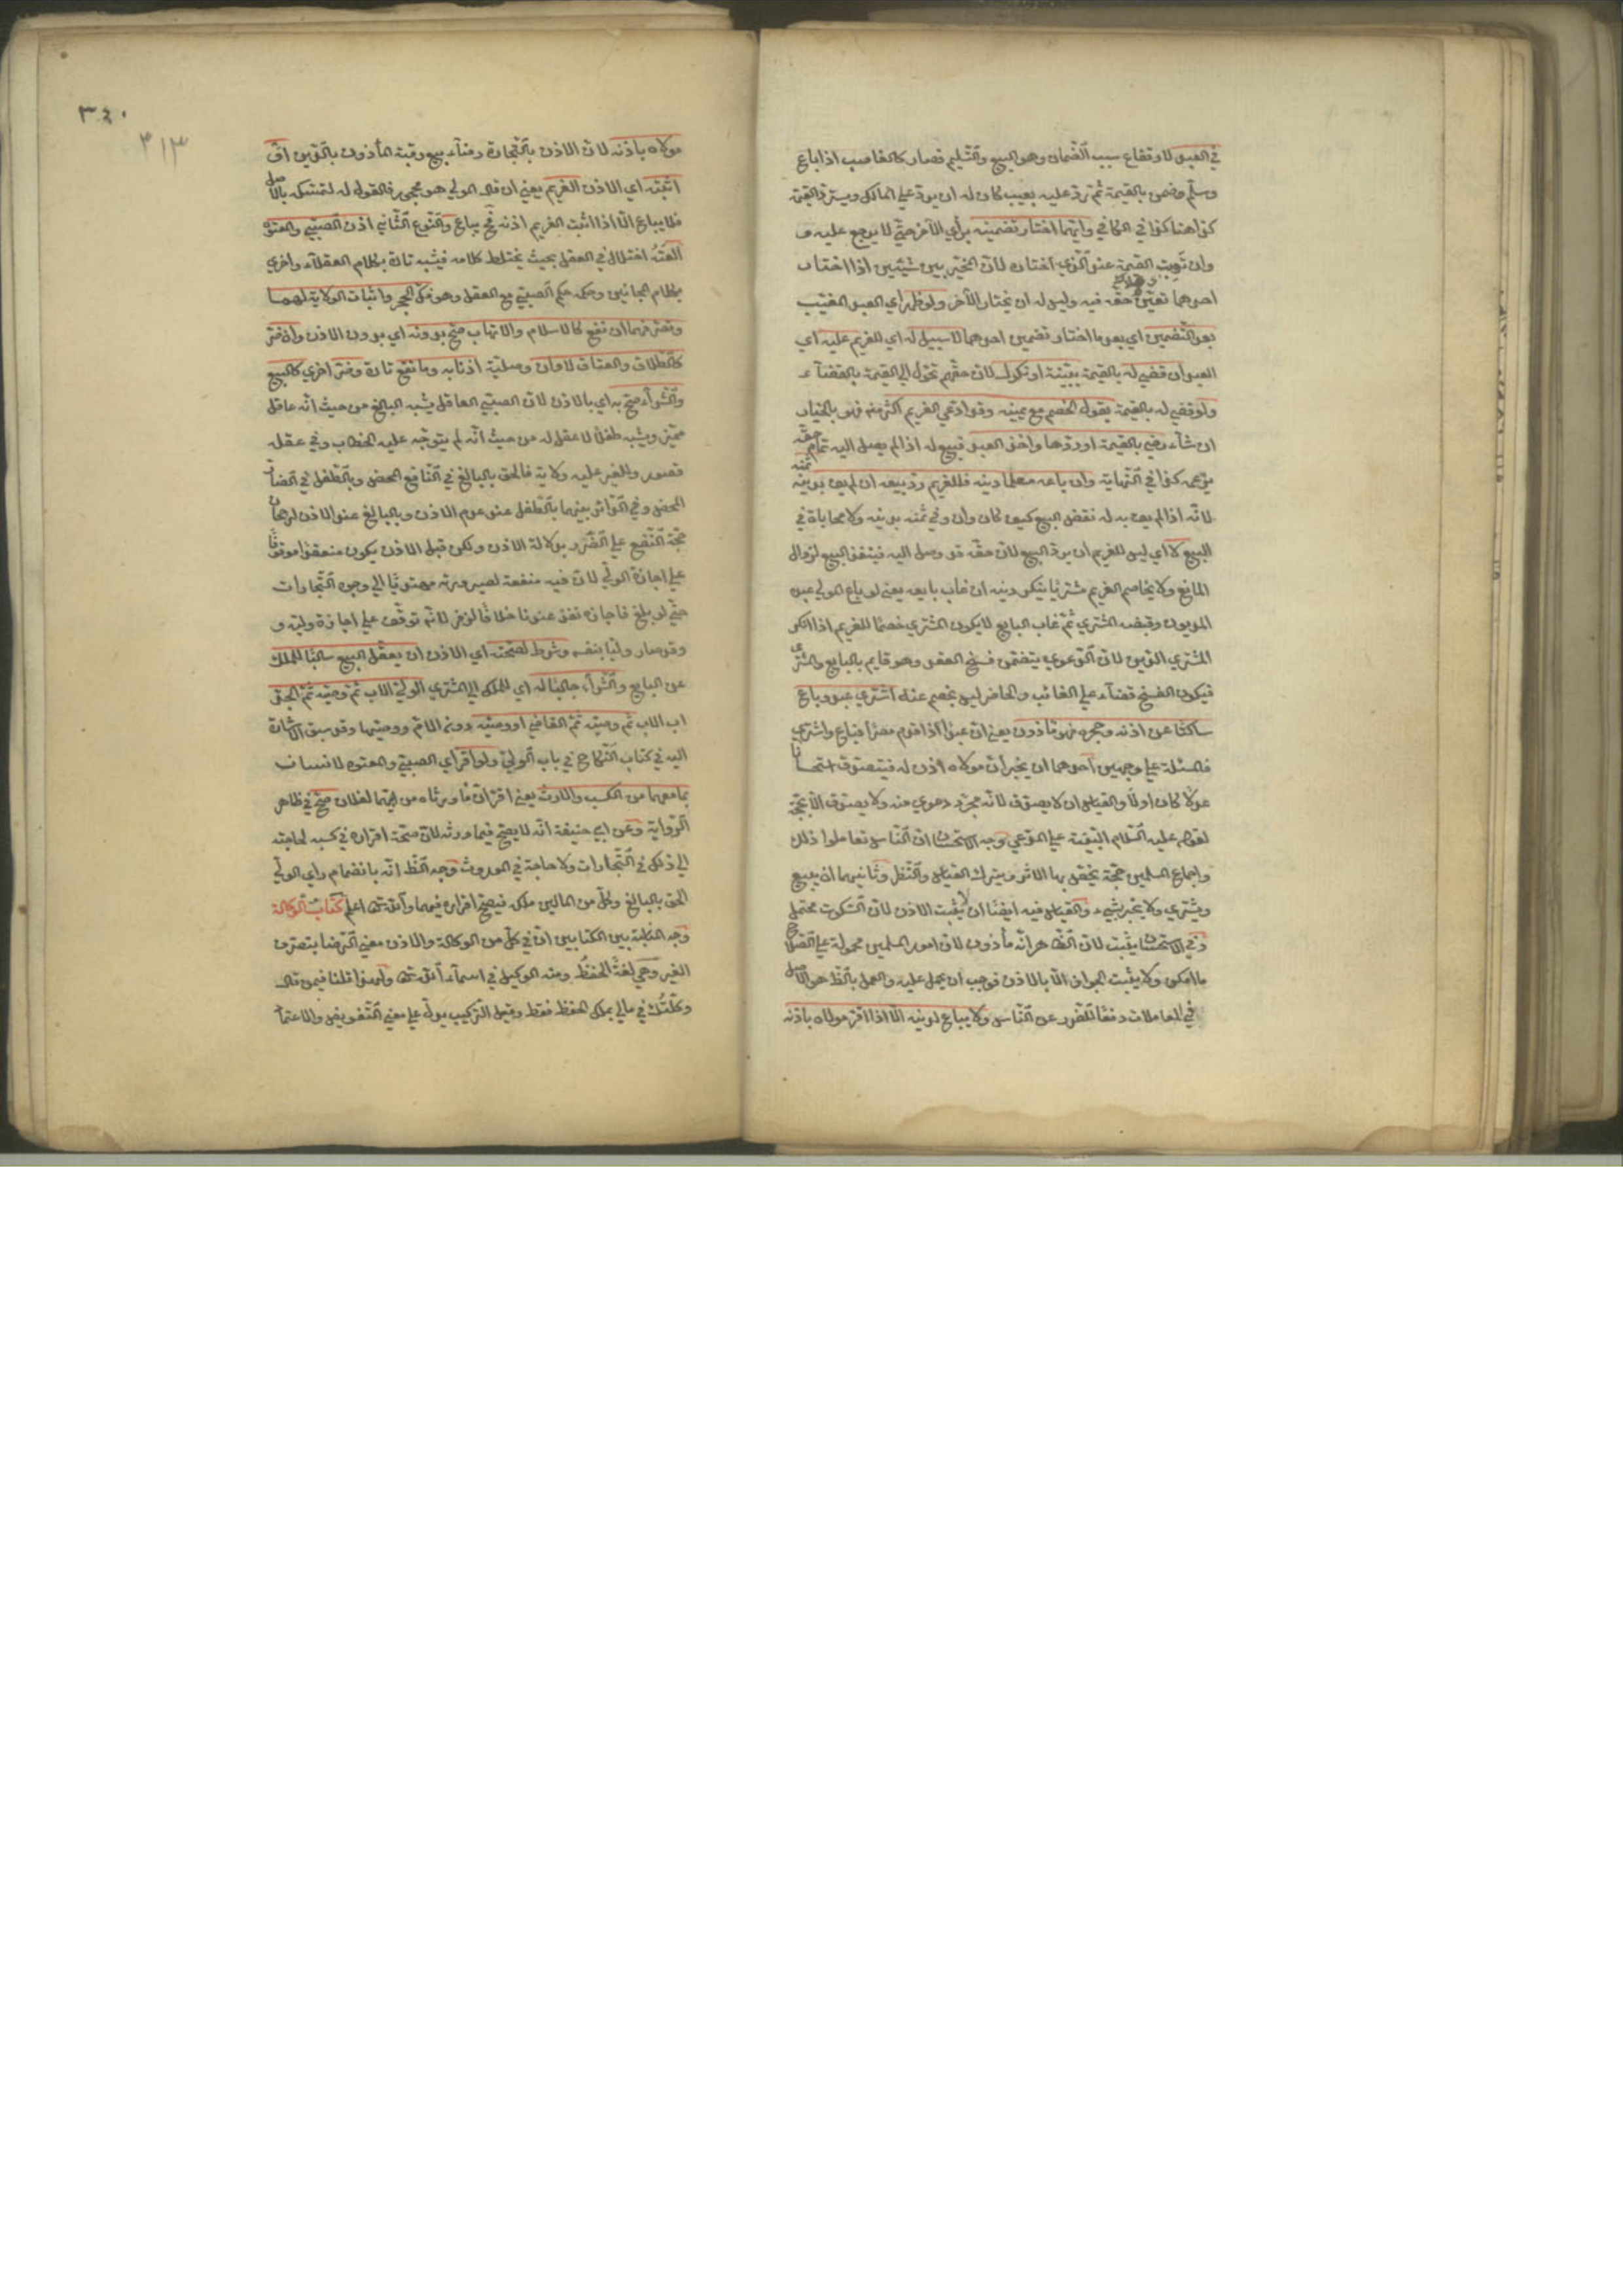 في العبد لارتفاع سبب الضمان وهو البيع والتسليم فصار كالغاصب اذا باع
وسلم وضمن بالقيمة ثم رد عليه بعيب كان له ان يرد على المالك ويسترد القيمة
كذا هنا كذا في الكافي وايهما اختار تضمينه برأي الآخر حتى لا يرجع عليه
وان القيمة عند الذي اختاره لان المخير بين شيئين اذا اختار
احدهما تعين حقه فيه وليس له ان يختار الآخر ولو ظهر اي العبد المغيب
بعد التضمين اي بعد ما اختار تضمين احدهما لا سبيل له اي للغريم عليه اي
العبد ان قضى له بالقيمة ببينة او نكول لان حقهم تحول الى القيمة بالقضاء
ولو قضى له بالقيمة بقول الخصم مع يمينه وقد ادعى الغريم اكثر منه فهو بالخيار
ان شاء رضي بالقيمة او ردها واخذ العبد فبيع له اذا لم يصل اليه تمام حقه
بزعمه كذا في النهاية وان باعه معلما دينه فللغريم رد بيعه ان لم يف ثمنه بدينه
لانه اذا لم يف به له نقض البيع كيف كان وان وفى ثمنه بدينه ولا محاباة في
البيع لا اي ليس للغريم ان يرد البيع لان حقه قد وصل اليه فينفذ البيع لزوال
المانع ولا يخاصم الغريم مشتريا ينكر دينه ان غاب بايعه يعني لو باع المولى عبده
المديون وقبضه المشتري ثم غاب البايع لا يكون المشتري خصما للغريم اذا انكر
المشتري الدين لان الدعوى يتضمن فسخ العقد وهو قايم بالبايع والمشتري
فيكون الفسخ قضاء على الغائب والحاضر ليس بخصم عنه اشترى عبد وباع
ساكتا عن اذنه وحجره فهو مأذون يعني ان عبدا اذا قدم مصرا فباع واشترى
فالمسئلة على وجهين احدهما ان يخبر ان مولاه اذن له فيصدق استحسانا
عدلا كان او لا والقياس ان لا يصدق لانه مجرد دعوى منه ولا يصدق الا بحجة
لقوله عليه السلام البينة على المدعي وجه الاستحسان ان الناس تعاملوا ذلك
واجماع المسلمين حجة يخص بها الاثر ويترك القياس والنظر وثانيهما ان يبيع
ويشتري ولا يخبر بشيء والقياس فيه ايضا ان لا يثبت الاذن لان السكوت محتمل
وفي الاستحسان يثبت لان الظاهر انه مأذون لان امور المسلمين محمولة على الصلاح
ما امكن ولا يثبت الجواز الا بالاذن فوجب ان يحمل عليه والعمل بالظ هو الاصل
في المعاملات دفعا للضرر عن الناس ولا يباع لدينه الا اذا اقر مولاه باذنه
٣٤٠
٣١٣
مولاه باذنه لان الاذن بالتجارة رضاء ببيع رقبة المأذون بالدين او
اثبته اي الاذن الغريم يعني ان قال المولى هو محجور فالقول له لتمسكه بالاصل
فلا يباع الا اذا اثبت الغريم اذنه فح يباع والنوع الثاني اذن الصبي والمعتوه
العته اختلال في العقل بحيث يختلط كلامه فيشبه تارة بكلام العقلاء واخرى
بكلام المجانين وحكمه حكم الصبي مع العقل وهو فك الحجر واثبات الولاية لهما
وتصرفهما ان نفع كالاسلام والاتهاب صح بدونه اي بدون الاذن وان ضر
كالطلاق والعتاق لا وان وصلية اذنا به وما نفع تارة وضر اخرى كالبيع
والشراء صح به اي بالاذن لان الصبي العاقل يشبه البالغ من حيث انه عاقل
مميز ويشبه طفلا لا عقل له من حيث انه لم يتوجه عليه الخطاب وفي عقله
قصور وللغير عليه ولاية فالحق بالبالغ في النافع المحض وبالطفل في الضار
المحض وفي الدائر بينهما بالطفل عند عدم الاذن وبالبالغ عند الاذن لرجحان
جهة النفع على الضرر بدلالة الاذن ولكن قبل الاذن يكون منعقدا موقوفا
على اجازة الولي لان فيه منفعة لصيرورته مهتديا الى وجوه التجارات
حتى لو بلغ فاجازه نفذ عندنا خلافا لزفر لانه توقف على اجازة وليه و
وقد صار وليا بنفسه وشرط لصحته اي الاذن ان يعقل البيع سالبا للملك
عن البايع والشراء جالبا له اي للملك الى المشتري الولي الاب ثم وصيه ثم الجد
اب الاب ثم وصيه ثم القاضي او وصيه دون الام ووصيها وقد سبق الاشارة
اليه في كتاب النكاح في باب الولي ولو اقر اي الصبي والمعتوه لانسان
بما معهما من الكسب والارث يعني اقر ان ما ورثاه من ابيهما لفلان صح في ظاهر
الرواية وعن ابي حنيفة انه لا يصح فيما ورثه لان صحة اقراره في كسبه لحاجته
الى ذلك في التجارات ولا حاجة في الموروث وجه الظ انه بانضمام راي الولي
الحق بالبالغ وكل من المالين ملكه فيصح اقراره فيهما والله تعالى اعلم كتاب الوكالة
وجه المناسبة بين الكتابين ان في كل من الوكالة والاذن معنى الرضا بتصرف
الغير وهي لغة الحفظ ومنه الوكيل في اسماء الله تعالى ولهذا قلنا فيمن قال
وكلتك في مالي يملك الحفظ فقط وقيل التركيب يدل على معنى التفويض والاعتماد